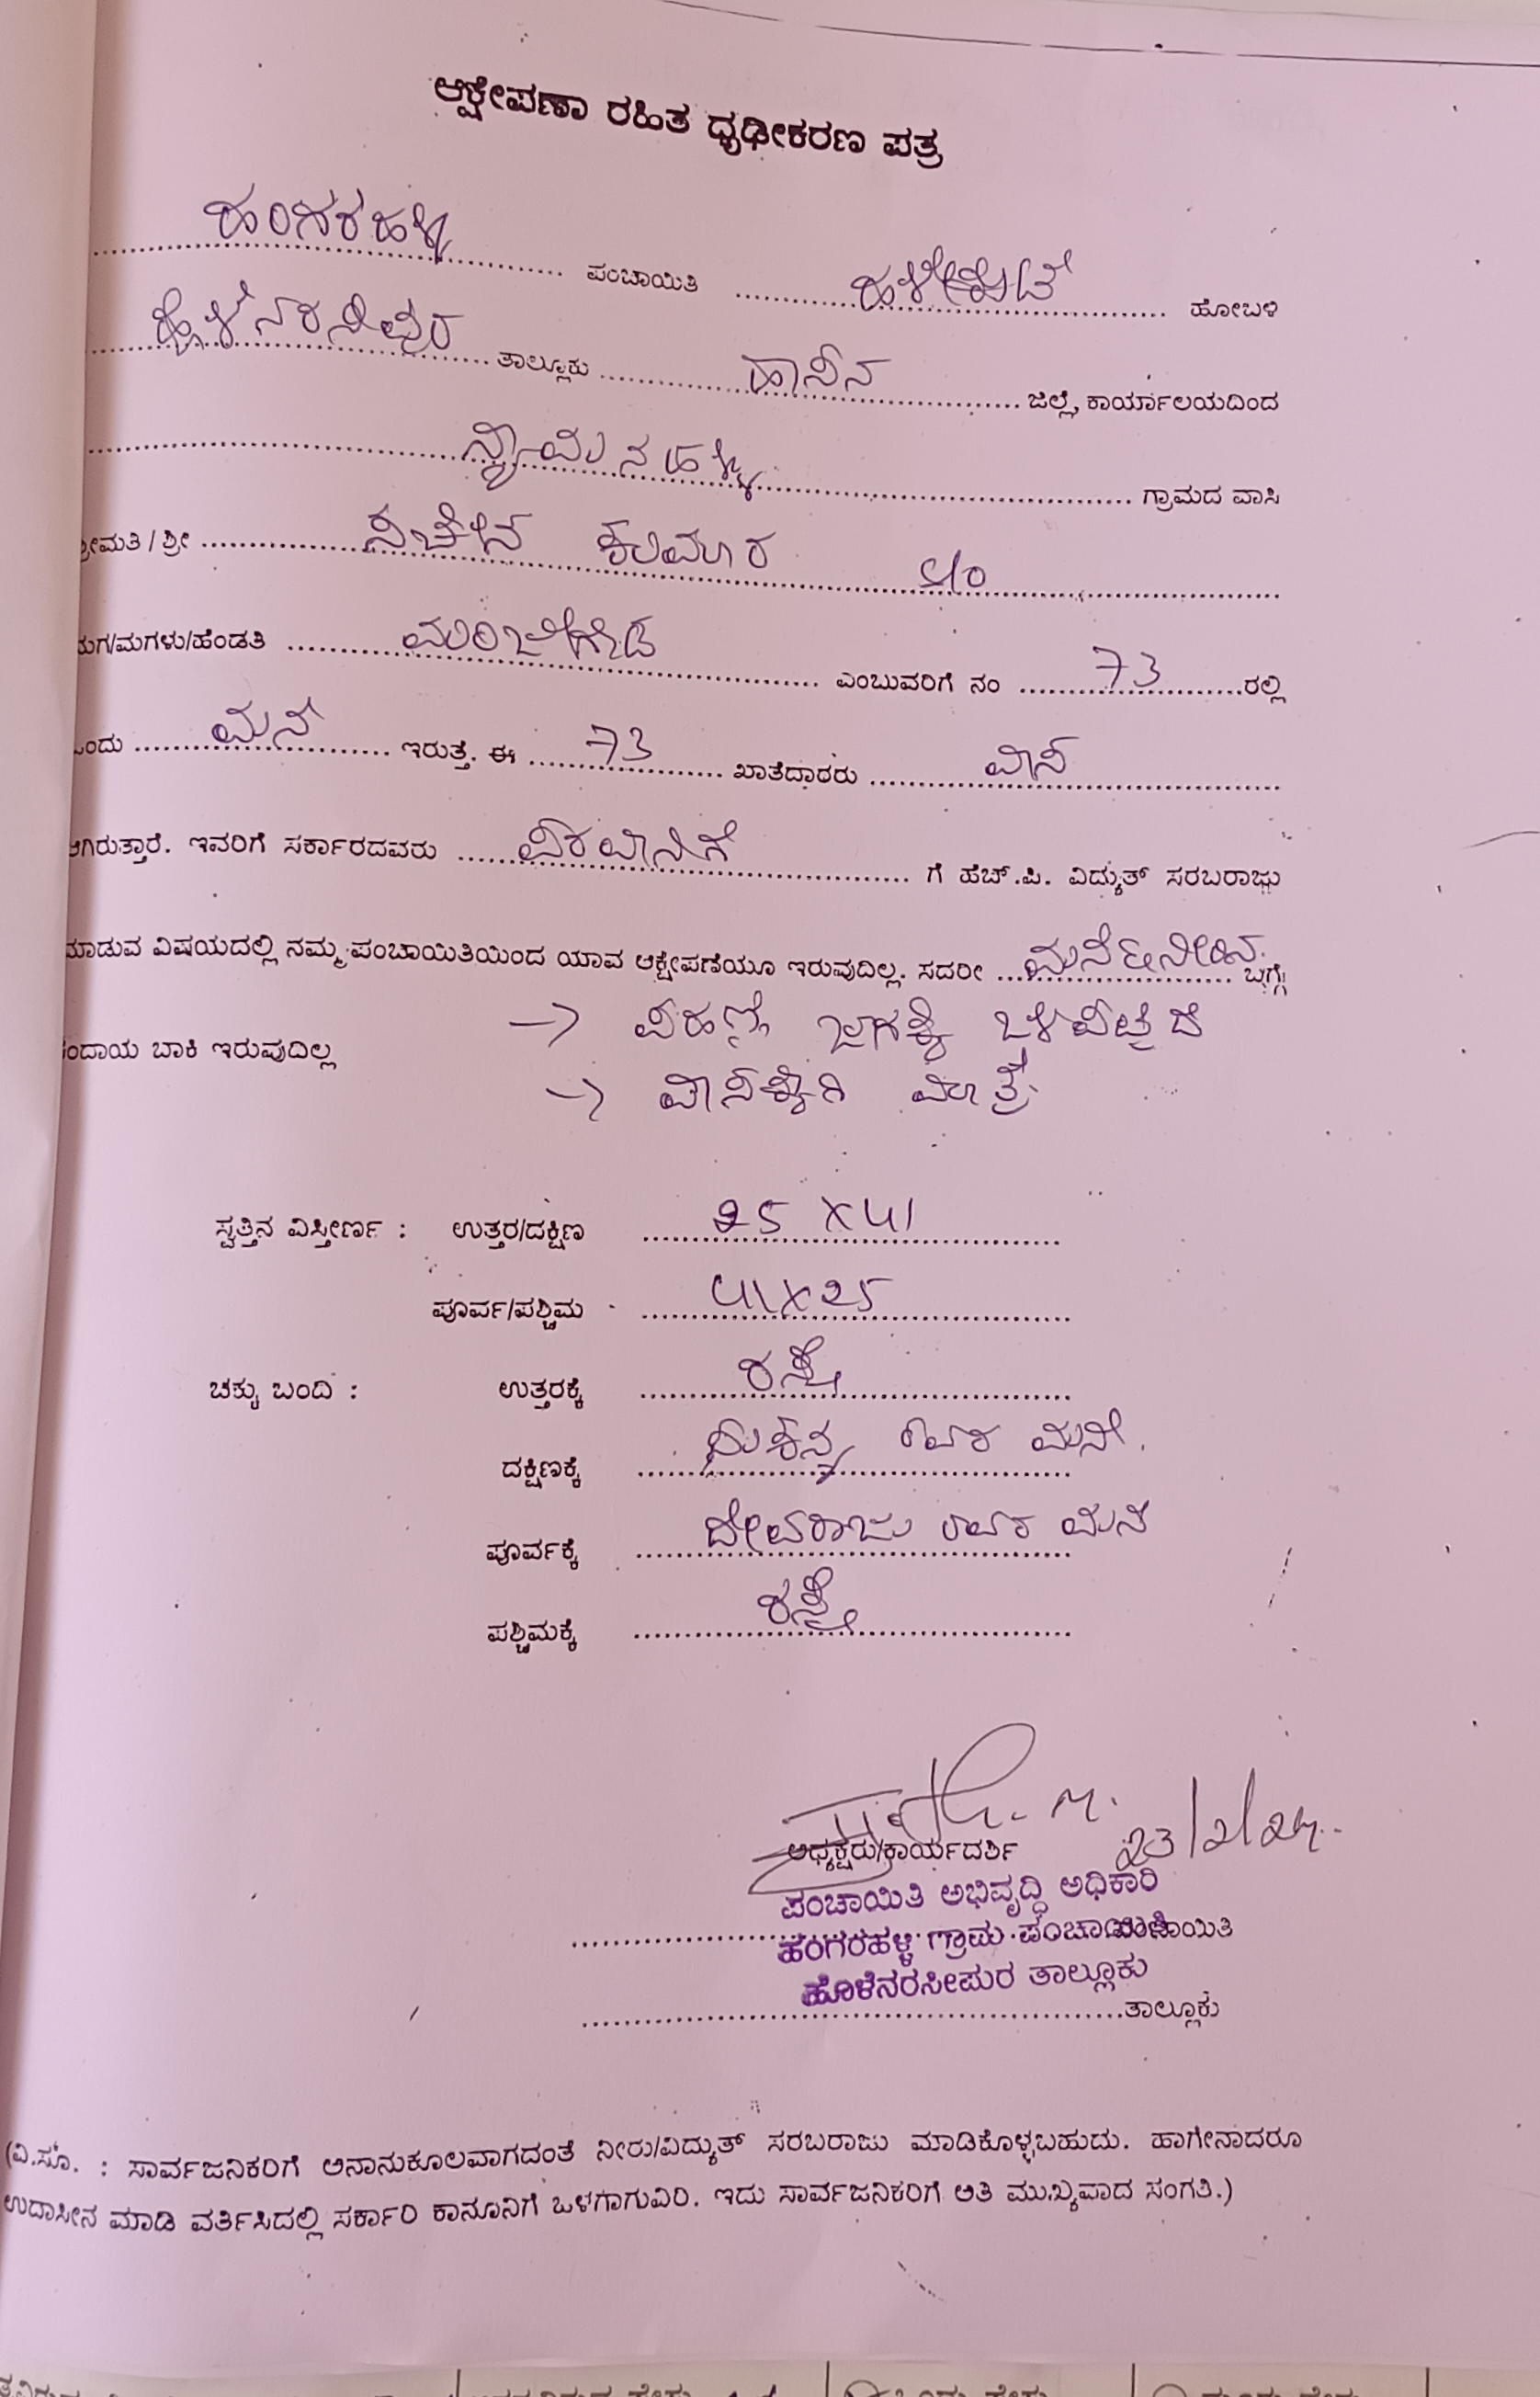 ಆಕ್ಷೇಪಣಾ ರಹಿತ ಧೃಢೀಕರಣ ಪತ್ರ
ಹಂಗರಹಳ್ಳಿ ಪಂಚಾಯಿತಿ ಹಳೇಕೋಟೆ ಹೋಬಳಿ
ಹೊಳೆನರಸೀಪುರ ತಾಲ್ಲೂಕು ಹಾಸನ ಜಿಲ್ಲೆ, ಕಾರ್ಯಾಲಯದಿಂದ
ಗ್ರಾಮದ ವಾಸಿ
ಶ್ರೀಮತಿ / ಶ್ರೀ ಕುಮಾರ s/o
ಮಗ/ಮಗಳು/ಹೆಂಡತಿ ಮಂಜೇಗೌಡ ಎಂಬುವರಿಗೆ ನಂ 73 ರಲ್ಲಿ
ಒಂದು ಮನೆ ಇರುತ್ತೆ. ಈ 73 ಖಾತೆದಾರರು ವಾಸ
ಆಗಿರುತ್ತಾರೆ. ಇವರಿಗೆ ಸರ್ಕಾರದವರು ಗೆ ಹೆಚ್.ಪಿ. ವಿದ್ಯುತ್ ಸರಬರಾಜು
ಮಾಡುವ ವಿಷಯದಲ್ಲಿ ನಮ್ಮ ಪಂಚಾಯಿತಿಯಿಂದ ಯಾವ ಆಕ್ಷೇಪಣೆಯೂ ಇರುವುದಿಲ್ಲ. ಸದರೀ ಬಗ್ಗೆ
→ ಜಾಗಕ್ಕೆ ಒಳಪಟ್ಟಿದೆ
ಕಂದಾಯ ಬಾಕಿ ಇರುವುದಿಲ್ಲ
→ ವಾಸಕ್ಕಾಗಿ ಮಾತ್ರ
ಸ್ವತ್ತಿನ ವಿಸ್ತೀರ್ಣ : ಉತ್ತರ/ದಕ್ಷಿಣ 25 X 41
ಪೂರ್ವ/ಪಶ್ಚಿಮ 41 X 25
ಚಕ್ಕು ಬಂದಿ : ಉತ್ತರಕ್ಕೆ ರಸ್ತೆ
ದಕ್ಷಿಣಕ್ಕೆ ರವರ ಮನೆ.
ಪೂರ್ವಕ್ಕೆ ದೇವರಾಜು ರವರ ಮನೆ
ಪಶ್ಚಿಮಕ್ಕೆ ರಸ್ತೆ
ಅಧ್ಯಕ್ಷರು/ಕಾರ್ಯದರ್ಶಿ 23/2/24.
ಪಂಚಾಯಿತಿ ಅಭಿವೃದ್ಧಿ ಅಧಿಕಾರಿ
ಹಂಗರಹಳ್ಳಿ ಗ್ರಾಮ ಪಂಚಾಯಿತಿ
ಹೊಳೆನರಸೀಪುರ ತಾಲ್ಲೂಕು
ತಾಲ್ಲೂಕು
(ವಿ.ಸೂ. : ಸಾರ್ವಜನಿಕರಿಗೆ ಅನಾನುಕೂಲವಾಗದಂತೆ ನೀರು/ವಿದ್ಯುತ್ ಸರಬರಾಜು ಮಾಡಿಕೊಳ್ಳಬಹುದು. ಹಾಗೇನಾದರೂ
ಉದಾಸೀನ ಮಾಡಿ ವರ್ತಿಸಿದಲ್ಲಿ ಸರ್ಕಾರಿ ಕಾನೂನಿಗೆ ಒಳಗಾಗುವಿರಿ. ಇದು ಸಾರ್ವಜನಿಕರಿಗೆ ಅತಿ ಮುಖ್ಯವಾದ ಸಂಗತಿ.)